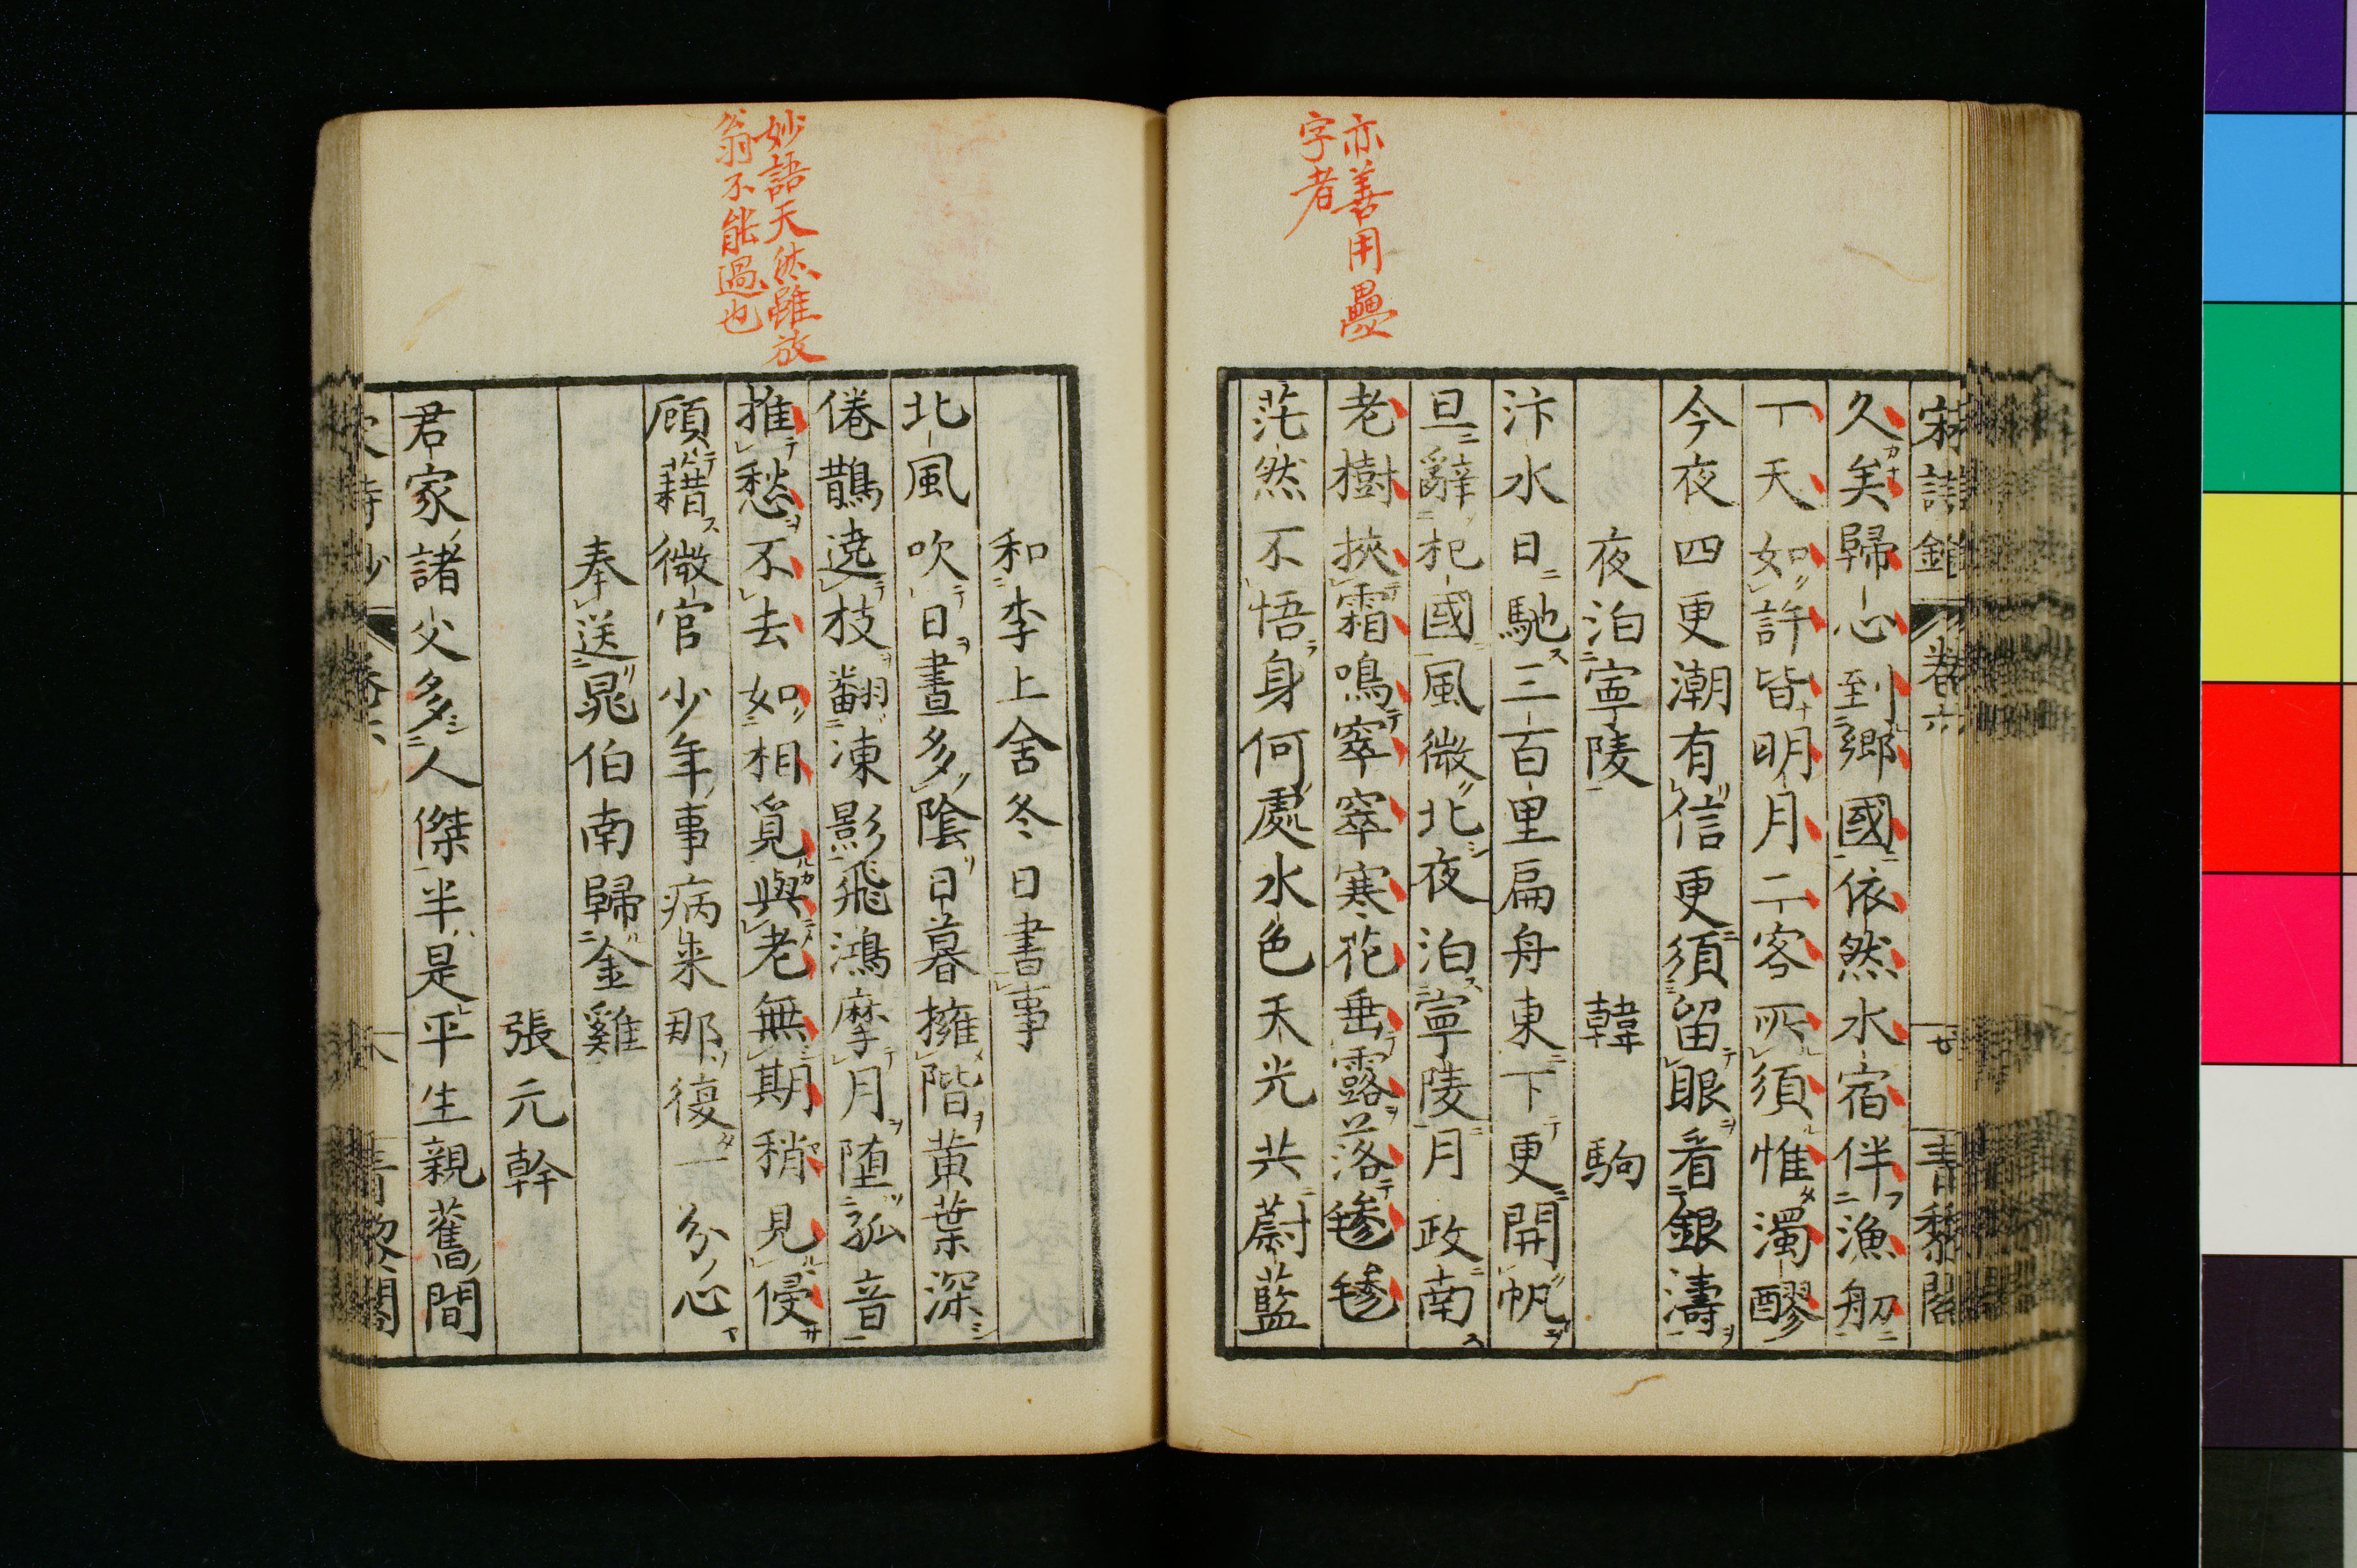 亦善用疊
字者
宋詩鈔 卷六 廿 青藜閣
久矣歸心到鄉國依然水宿伴漁舠
丁天如許皆明月二客所須惟濁醪
今夜四更潮有信更須留眼看銀濤
夜泊寧陵 韓駒
汴水日馳三百里扁舟東下更開帆
旦辭杞國風微北夜泊寧陵月政南
老樹挾霜鳴窣窣寒花垂露落毿毿
茫然不悟身何處水色天光共蔚藍
妙語天然雖放
翁不能過也
和李上舍冬日書事
北風吹日晝多陰日暮擁階黃葉深
倦鵲遶枝翻凍影飛鴻摩月墮孤音
推愁不去如相覓與老無期稍見侵
顧藉微官少年事病来那復一分心
奉送晁伯南歸金谿
張元幹
君家諸父多人傑半是平生親舊間